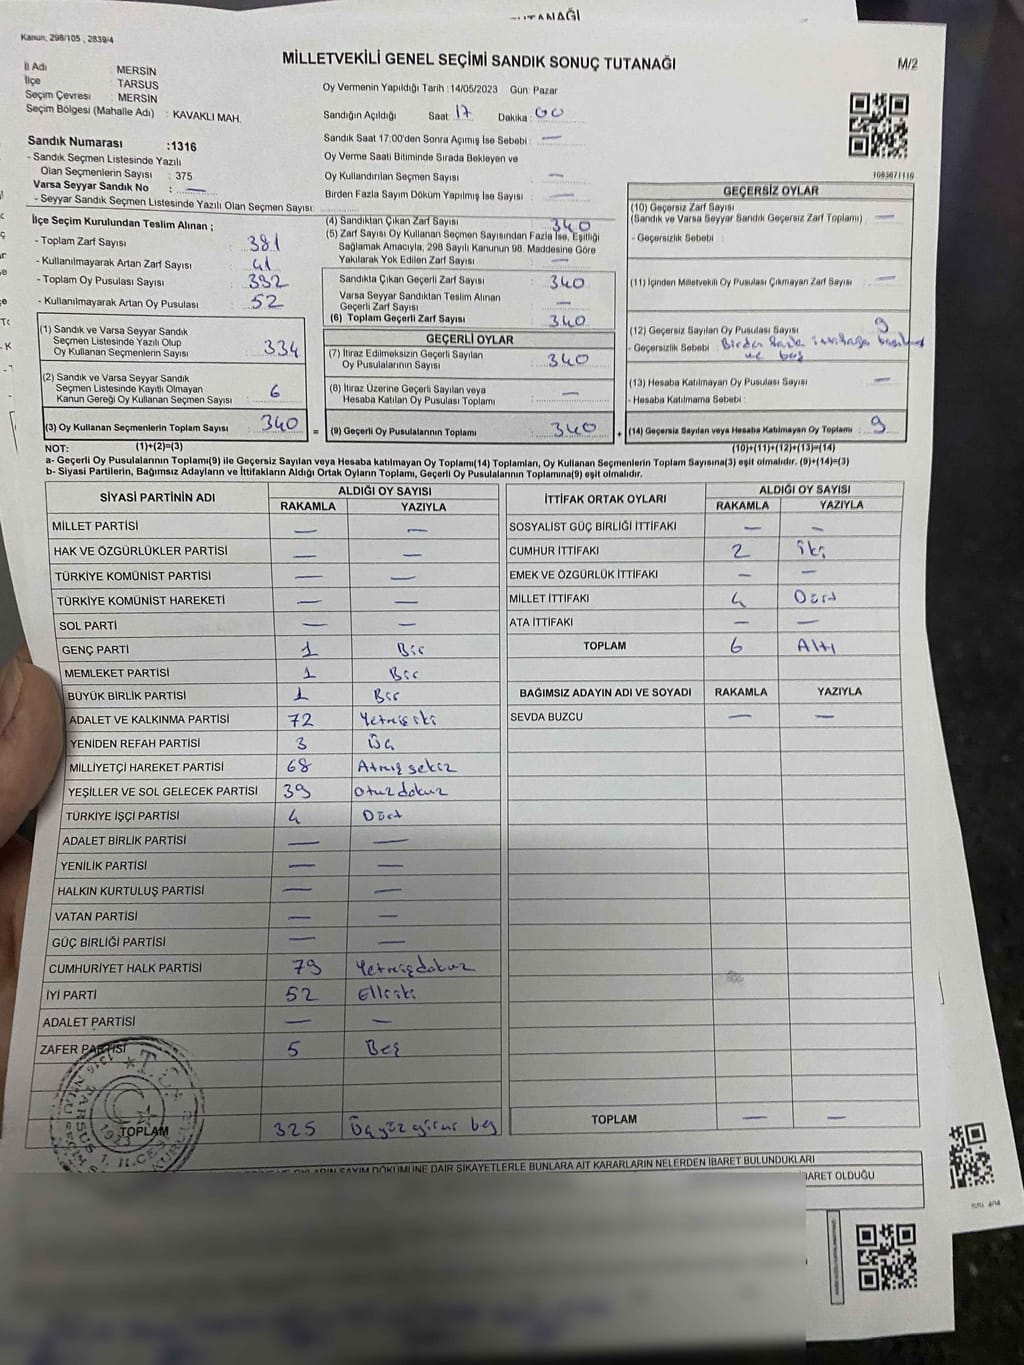 Kanun; 298/105 , 2839/4
MİLLETVEKİLİ GENEL SEÇİMİ SANDIK SONUÇ TUTANAĞI
M/2
İl Adı : MERSİN
İlçe : TARSUS
Seçim Çevresi : MERSİN
Seçim Bölgesi (Mahalle Adı) : KAVAKLI MAH.
Oy Vermenin Yapıldığı Tarih :14/05/2023 Gün: Pazar
Sandığın Açıldığı Saat: 17 Dakika : 00
Sandık Saat 17:00'den Sonra Açımış İse Sebebi : —
Oy Verme Saati Bitiminde Sırada Bekleyen ve
Oy Kullandırılan Seçmen Sayısı : —
Birden Fazla Sayım Döküm Yapılmış İse Sayısı : —
Sandık Numarası :1316
- Sandık Seçmen Listesinde Yazılı
Olan Seçmenlerin Sayısı : 375
Varsa Seyyar Sandık No : —
- Seyyar Sandık Seçmen Listesinde Yazılı Olan Seçmen Sayısı:
İlçe Seçim Kurulundan Teslim Alınan ;
- Toplam Zarf Sayısı : 381
- Kullanılmayarak Artan Zarf Sayısı : 41
- Toplam Oy Pusulası Sayısı : 392
- Kullanılmayarak Artan Oy Pusulası : 52
(1) Sandık ve Varsa Seyyar Sandık
Seçmen Listesinde Yazılı Olup
Oy Kullanan Seçmenlerin Sayısı : 334
(2) Sandık ve Varsa Seyyar Sandık
Seçmen Listesinde Kayıtlı Olmayan
Kanun Gereği Oy Kullanan Seçmen Sayısı : 6
(3) Oy Kullanan Seçmenlerin Toplam Sayısı : 340
(4) Sandıktan Çıkan Zarf Sayısı : 340
(5) Zarf Sayısı Oy Kullanan Seçmen Sayısından Fazla İse, Eşitliği
Sağlamak Amacıyla, 298 Sayılı Kanunun 98. Maddesine Göre
Yakılarak Yok Edilen Zarf Sayısı : —
Sandıkta Çıkan Geçerli Zarf Sayısı : 340
Varsa Seyyar Sandıktan Teslim Alınan
Geçerli Zarf Sayısı : —
(6) Toplam Geçerli Zarf Sayısı : 340
GEÇERLİ OYLAR
(7) İtiraz Edilmeksizin Geçerli Sayılan
Oy Pusulalarının Sayısı : 340
(8) İtiraz Üzerine Geçerli Sayılan veya
Hesaba Katılan Oy Pusulası Toplamı : —
= (9) Geçerli Oy Pusulalarının Toplamı : 340
1083671110
GEÇERSİZ OYLAR
(10) Geçersiz Zarf Sayısı
(Sandık ve Varsa Seyyar Sandık Geçersiz Zarf Toplamı) : —
- Geçersizlik Sebebi :
(11) İçinden Milletvekili Oy Pusulası Çıkmayan Zarf Sayısı : —
(12) Geçersiz Sayılan Oy Pusulası Sayısı : 9
- Geçersizlik Sebebi : Birden fazla
ve boş
(13) Hesaba Katılmayan Oy Pusulası Sayısı : —
- Hesaba Katılmama Sebebi :
+ (14) Geçersiz Sayılan veya Hesaba Katılmayan Oy Toplamı : 9
NOT: (1)+(2)=(3)
(10)+(11)+(12)+(13)=(14)
a- Geçerli Oy Pusulalarının Toplamı(9) ile Geçersiz Sayılan veya Hesaba katılmayan Oy Toplamı(14) Toplamları, Oy Kullanan Seçmenlerin Toplam Sayısına(3) eşit olmalıdır. (9)+(14)=(3)
b- Siyasi Partilerin, Bağımsız Adayların ve İttifakların Aldığı Ortak Oyların Toplamı, Geçerli Oy Pusulalarının Toplamına(9) eşit olmalıdır.
SİYASİ PARTİNİN ADI ALDIĞI OY SAYISI
RAKAMLA YAZIYLA
MİLLET PARTİSİ — —
HAK VE ÖZGÜRLÜKLER PARTİSİ — —
TÜRKİYE KOMÜNİST PARTİSİ — —
TÜRKİYE KOMÜNİST HAREKETİ — —
SOL PARTİ — —
GENÇ PARTİ 1 Bir
MEMLEKET PARTİSİ 1 Bir
BÜYÜK BİRLİK PARTİSİ 1 Bir
ADALET VE KALKINMA PARTİSİ 72 Yetmişiki
YENİDEN REFAH PARTİSİ 3 Üç
MİLLİYETÇİ HAREKET PARTİSİ 68 Atmış sekiz
YEŞİLLER VE SOL GELECEK PARTİSİ 39 Otuz dokuz
TÜRKİYE İŞÇİ PARTİSİ 4 Dört
ADALET BİRLİK PARTİSİ — —
YENİLİK PARTİSİ — —
HALKIN KURTULUŞ PARTİSİ — —
VATAN PARTİSİ — —
GÜÇ BİRLİĞİ PARTİSİ — —
CUMHURİYET HALK PARTİSİ 79 Yetmişdokuz
İYİ PARTİ 52 Elliiki
ADALET PARTİSİ — —
ZAFER PARTİSİ 5 Beş
TOPLAM 325 Üçyüz yirmi beş
İTTİFAK ORTAK OYLARI ALDIĞI OY SAYISI
RAKAMLA YAZIYLA
SOSYALİST GÜÇ BİRLİĞİ İTTİFAKI — —
CUMHUR İTTİFAKI 2 iki
EMEK VE ÖZGÜRLÜK İTTİFAKI — —
MİLLET İTTİFAKI 4 Dört
ATA İTTİFAKI — —
TOPLAM 6 Altı
BAĞIMSIZ ADAYIN ADI VE SOYADI RAKAMLA YAZIYLA
SEVDA BUZCU — —
TOPLAM — —
SAYIM DÖKÜMÜNE DAİR ŞİKAYETLERLE BUNLARA AİT KARARLARIN NELERDEN İBARET BULUNDUKLARI
İBARET OLDUĞU